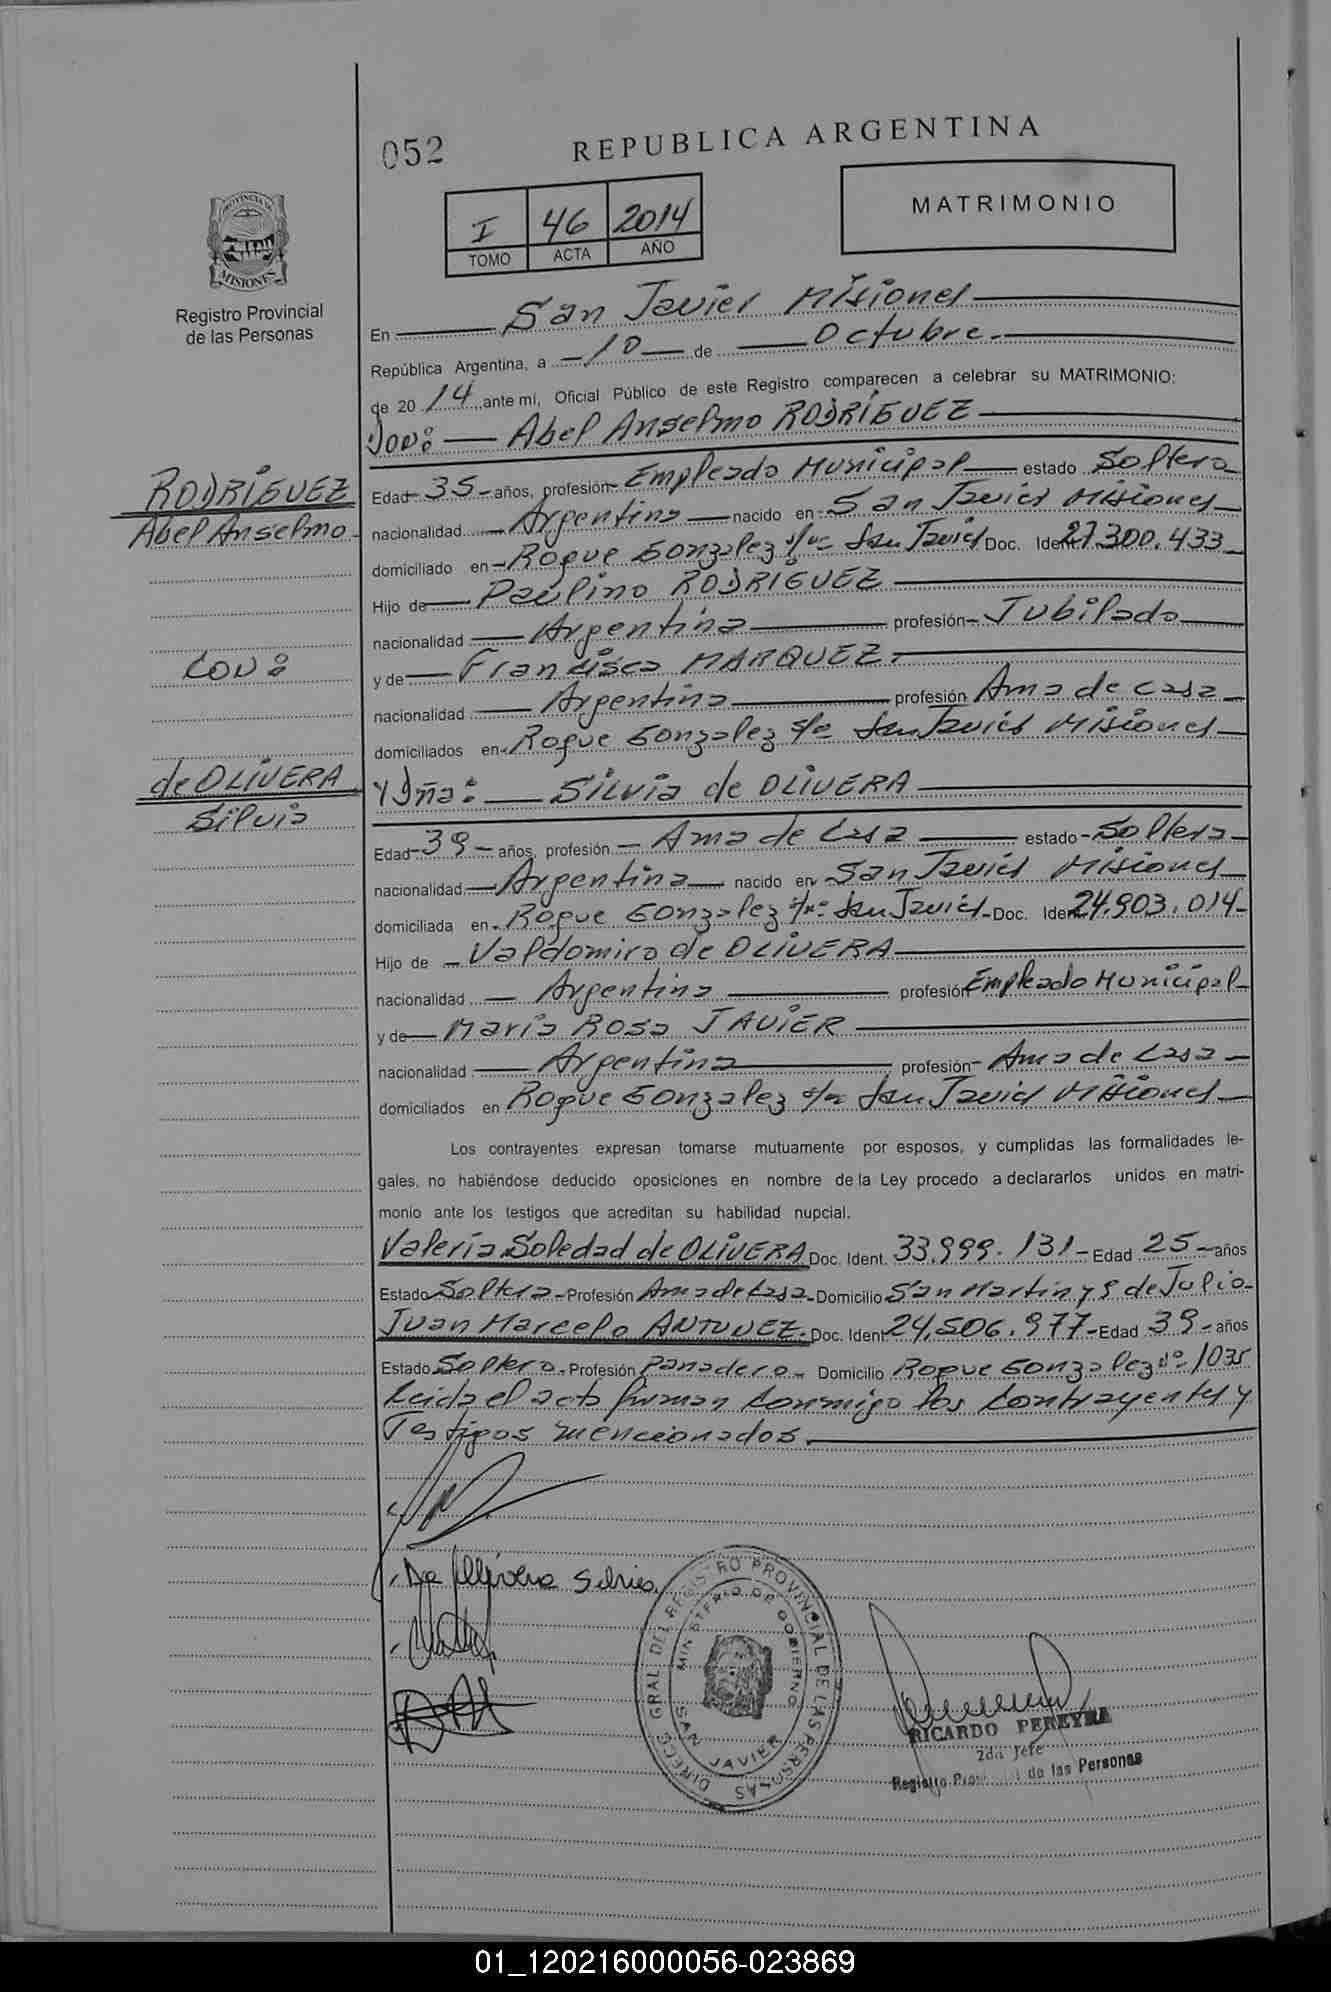 052
REPUBLICA ARGENTINA
I 46 2014
TOMO ACTA AÑO
MATRIMONIO
PROVINCIA DE MISIONES
Registro Provincial
de las Personas
En San Javier Misiones
República Argentina, a 10 de Octubre.
de 2014 ante mí, Oficial Público de este Registro comparecen a celebrar su MATRIMONIO:
Don: Abel Anselmo RODRIGUEZ
RODRIGUEZ
Abel Anselmo
Edad 35 años, profesión Empleado Municipal estado Soltero
nacionalidad Argentina nacido en San Javier Misiones
domiciliado en Roque Gonzalez s/nº San Javier Doc. Ident. 27.300.433
Hijo de Paulino RODRIGUEZ
nacionalidad Argentina profesión Jubilado
con:
y de Francisca MARQUEZ.
nacionalidad Argentina profesión Ama de casa
domiciliados en Roque Gonzalez s/nº San Javier Misiones
de OLIVERA
Silvia
Y Dña: Silvia de OLIVERA
Edad 39 años, profesión Ama de Casa estado Soltera
nacionalidad Argentina nacido en San Javier Misiones
domiciliada en Roque Gonzalez s/nº San Javier Doc. Ident. 24.903.014
Hijo de Valdomiro de OLIVERA
nacionalidad Argentina profesión Empleado Municipal
y de Maria Rosa JAVIER
nacionalidad Argentina profesión Ama de Casa
domiciliados en Roque Gonzalez s/nº San Javier Misiones
Los contrayentes expresan tomarse mutuamente por esposos, y cumplidas las formalidades le-
gales, no habiéndose deducido oposiciones en nombre de la Ley procedo a declararlos unidos en matri-
monio ante los testigos que acreditan su habilidad nupcial.
Valeria Soledad de OLIVERA Doc. Ident. 33.999.131 Edad 25 años
Estado Soltera Profesión Ama de Casa Domicilio San Martin y 9 de Julio
Juan Marcelo ANTUNEZ. Doc. Ident. 24.506.977 Edad 39 años
Estado Soltero Profesión Panadero Domicilio Roque Gonzalez nº 1035
Leida el acta firman conmigo los contrayentes y
Testigos mencionados.
De Olivera Silvia
DIRECC. GRAL DEL REGISTRO PROVINCIAL DE LAS PERSONAS
MINISTERIO DE GOBIERNO
SAN JAVIER
RICARDO PEREYRA
2do Jefe
Registro Provincial de las Personas
01_120216000056-023869